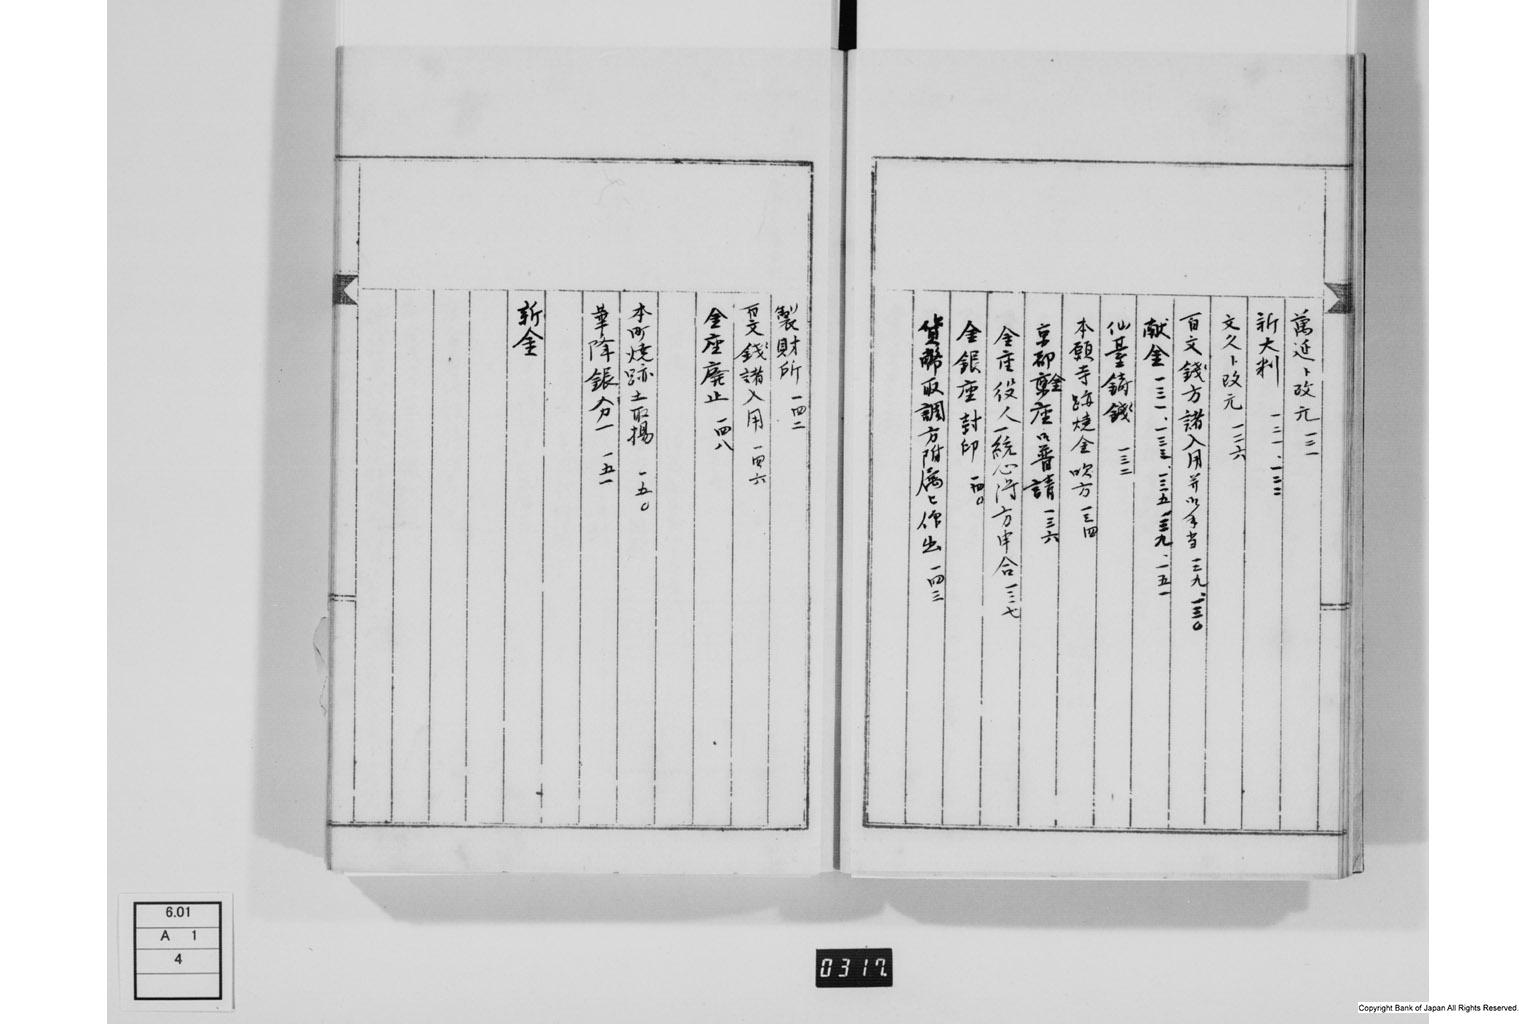 萬延ト改元 一二一
新大判 一二一、一二二
文久ト改元 一二六
百文錢方諸入用并御手当 一二九、一三〇
献金 一三一、一三三、一三五、一三九、一五一
仙臺鋳錢 一三二
本願寺跡燒金吹方 一三四
京都金座御普請 一三六
金座役人一統心得方申合 一三七
金銀座封印 一四〇
貨幣取調方附属被仰出 一四三
製財所 一四二
百文錢諸入用 一四六
金座廃止 一四八
本町燒跡土取揚 一五〇
華降銀分一 一五一
新金
6.01
A 1
4
0317
Copyright Bank of Japan All Rights Reserved.